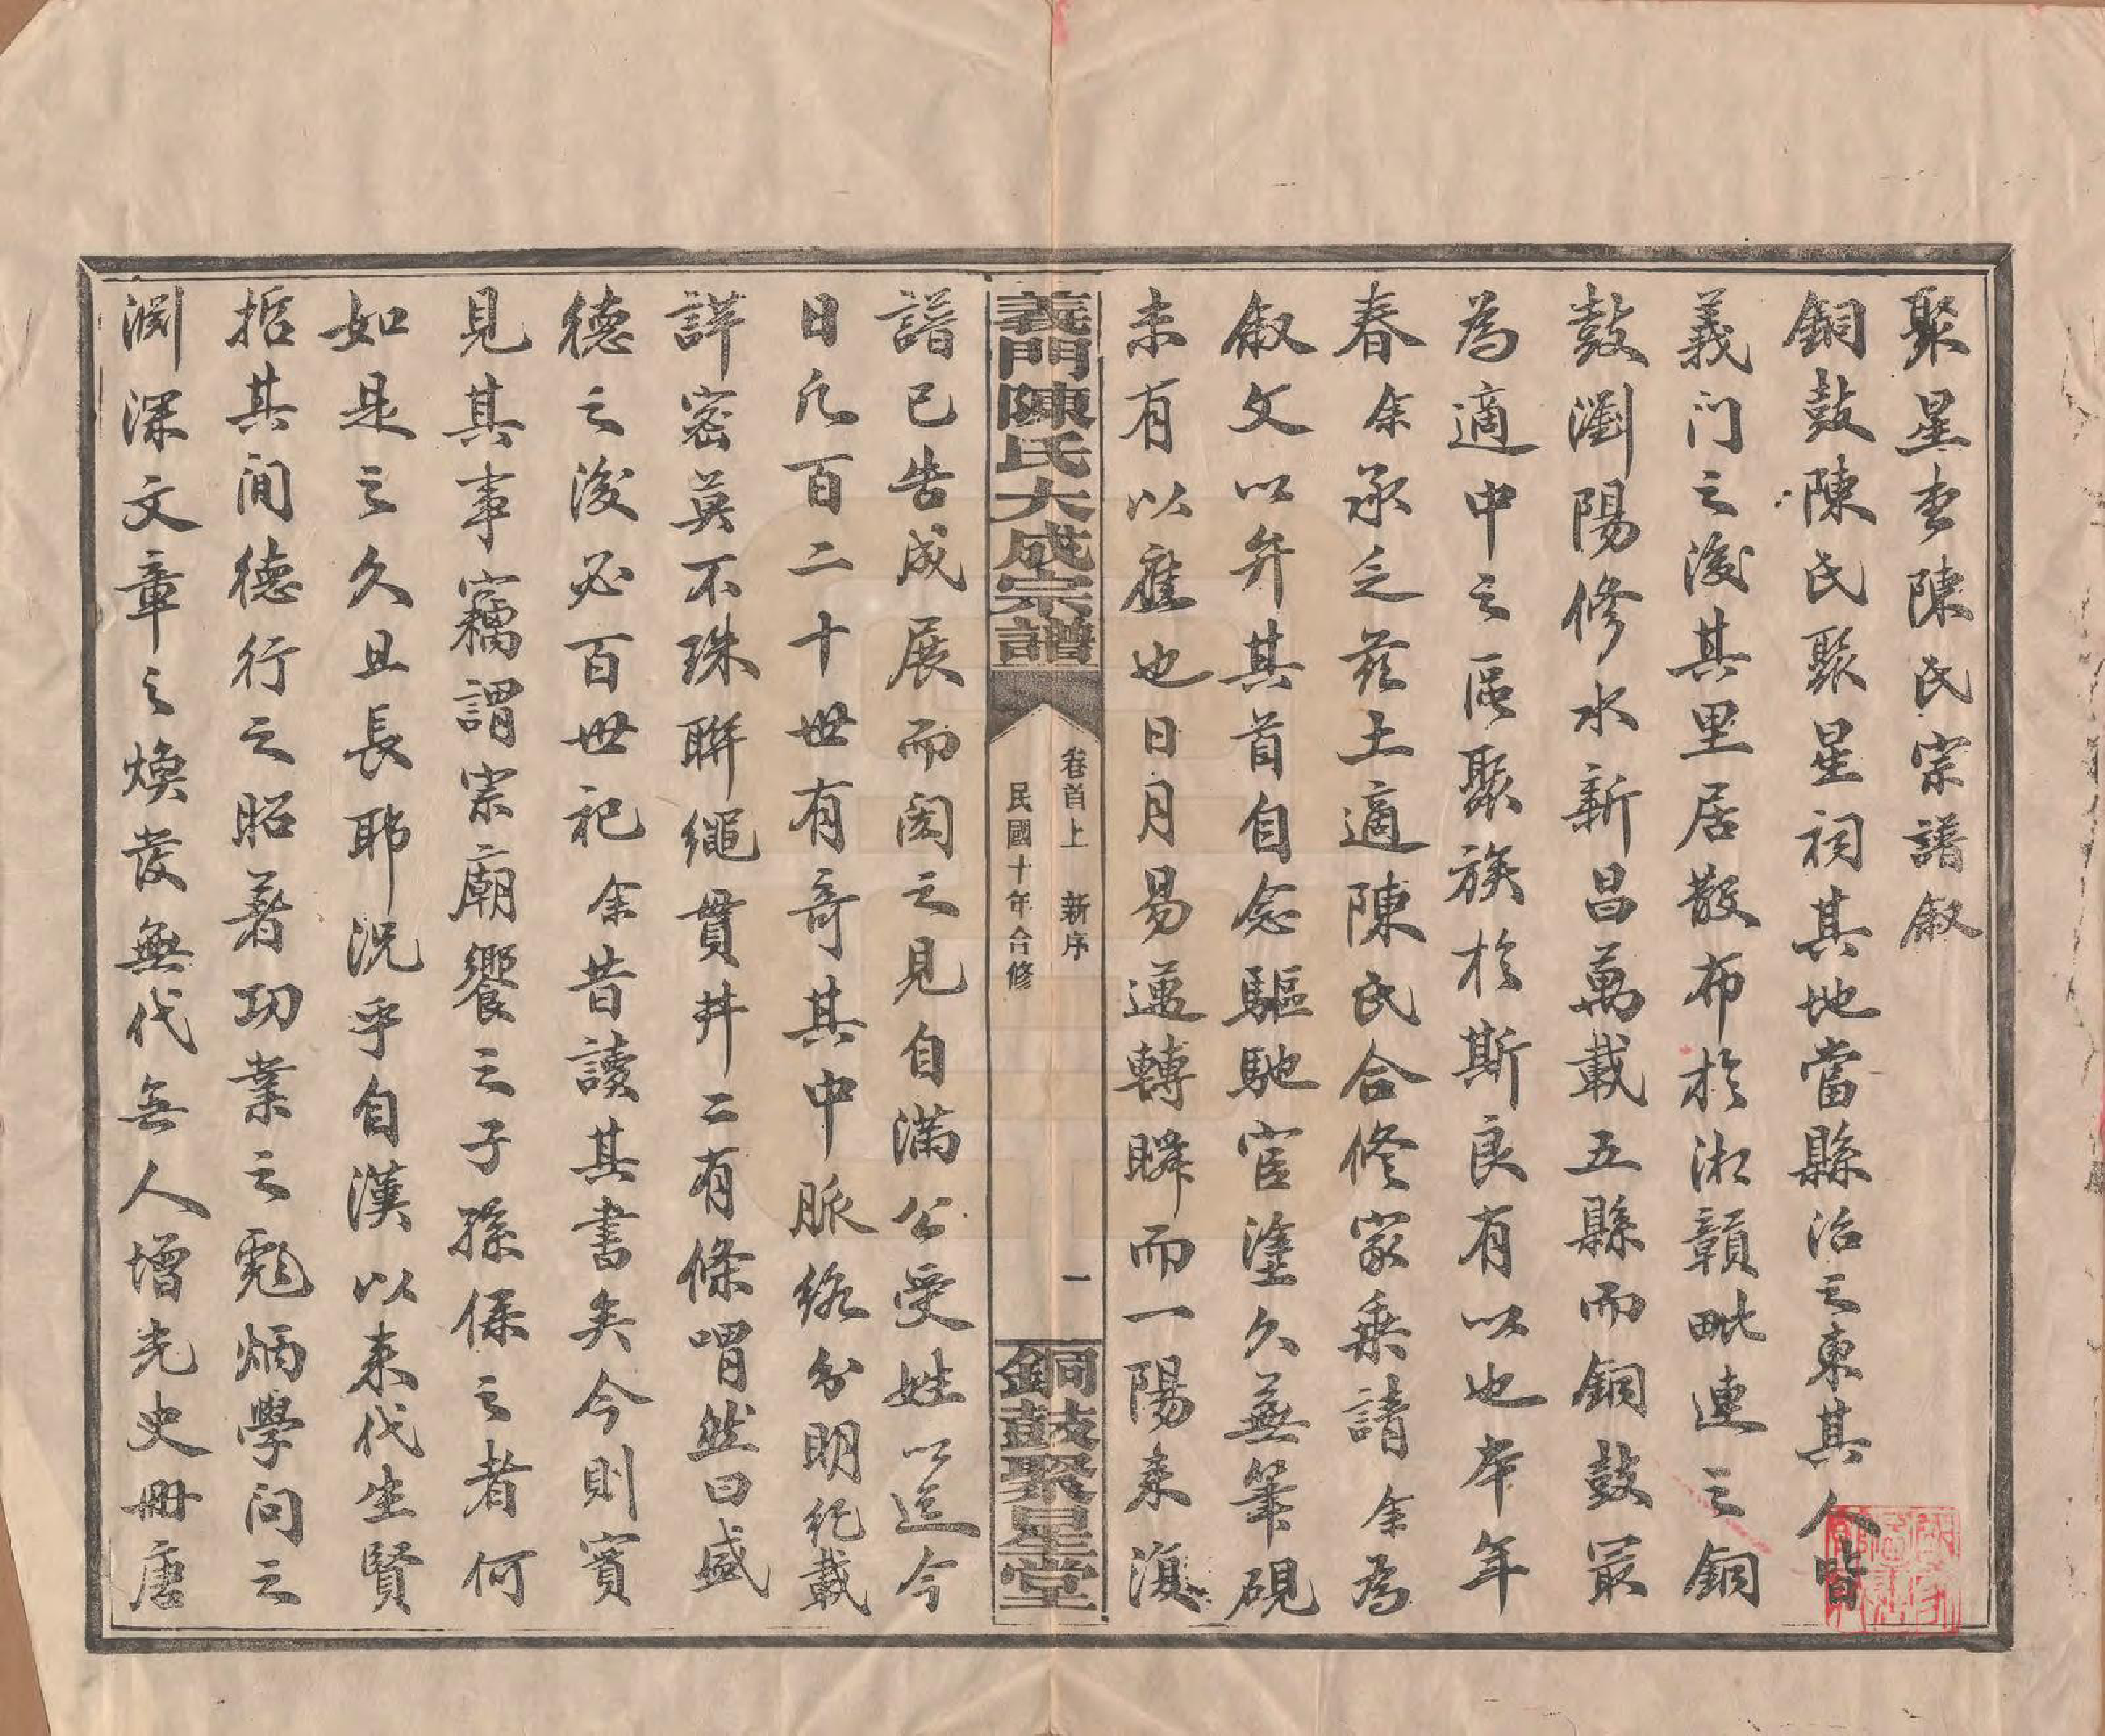 聚星堂陳氏宗譜敘
銅鼓陳氏聚星祠其地當縣治之東其人皆
義门之後其里居散布於湘贛毗連之銅
鼓瀏陽修水新昌萬載五縣而銅鼓最
為適中之區聚族於斯良有以也本年
春余承乏茲土適陳氏合修家乘請余為
敘文以弁其首自念驅馳宦塗久蕪筆硯
未有以應也日月易邁轉瞬而一陽来復
義門陳氏大成宗譜
卷首上 新序
民國十年合修
一
銅鼓聚星堂
譜已告成展而閱之見自滿公受姓以迄今
日凢百二十世有奇其中脈絡分明紀載
詳密莫不珠聨繩貫井二有條喟然曰盛
德之後必百世祀余昔讀其書矣今則實
見其事竊謂宗廟饗之子孫保之者何
如是之久且長耶況乎自漢以来代生賢
哲其间德行之昭著功業之彪炳學问之
渊深文章之煥發無代無人增光史冊唐